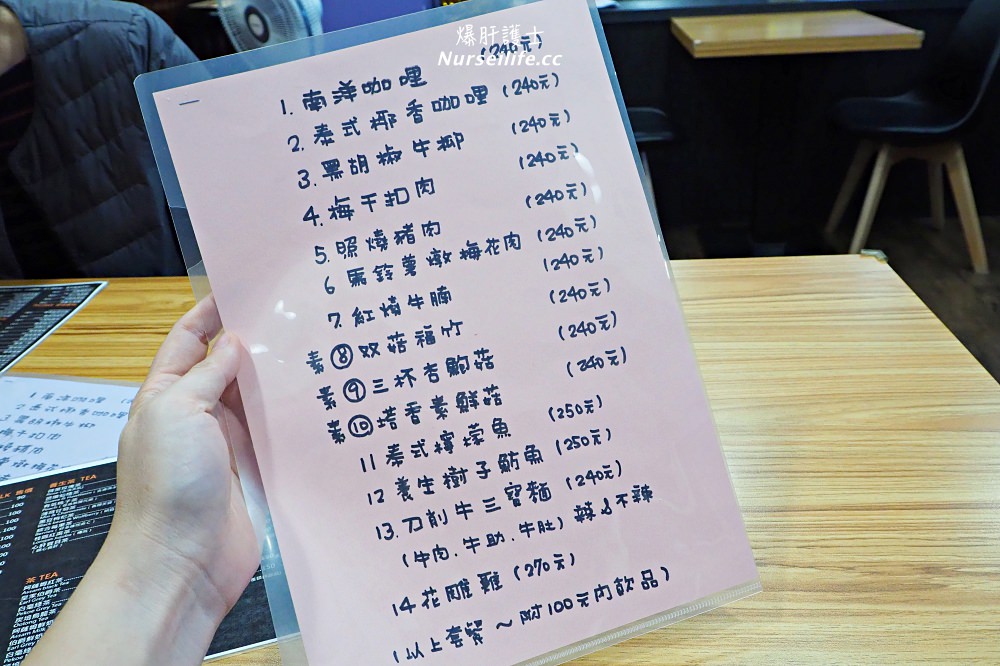 爆肝護士
Nurseilife.cc
1. 南洋咖哩 (240元)
2. 泰式椰香咖哩 (240元)
3. 黑胡椒牛柳 (240元)
4. 梅干扣肉 (240元)
5. 照燒豬肉 (240元)
6 馬鈴薯燉梅花肉 (240元)
7. 紅燒牛腩 (240元)
素⑧双菇福竹 (240元)
素⑨三杯杏鮑菇 (240元)
素⑩塔香素鮮菇 (240元)
11 泰式檸檬魚 (250元)
12 養生樹子魴魚 (250元)
13. 刀削牛三寶麵 (240元)
(牛肉.牛肋.牛肚) 辣&不辣
14 花雕雞 (270元)
(以上套餐~附100元內飲品)
養生茶 TEA
茶 TEA
Assam Black Tea
Earl Grey Tea
Oolong Tea